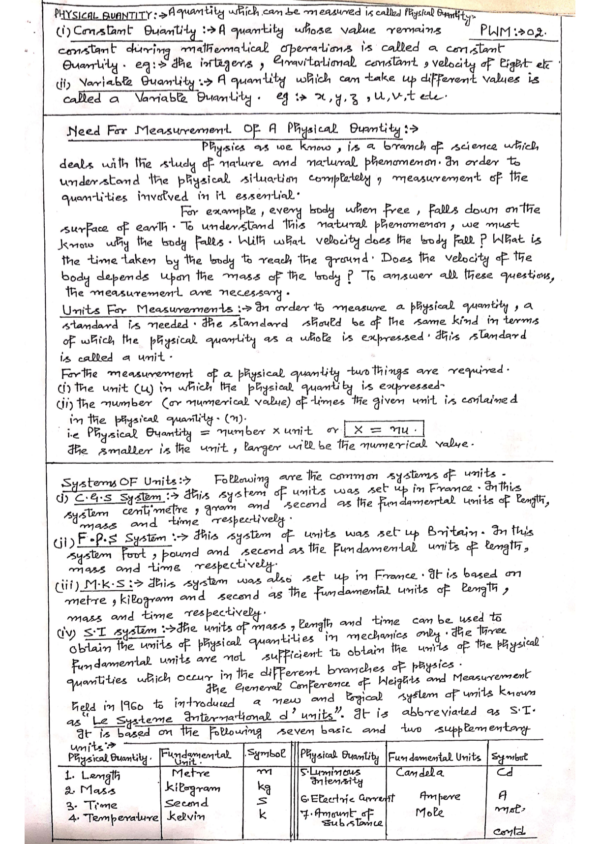 PHYSICAL QUANTITY:→ A quantity which can be measured is called Physical Quantity.
(i) Constant Quantity :→ A quantity whose value remains PWM:→02.
constant during mathematical operations is called a constant
Quantity. eg:→ The integers, Gravitational constant, velocity of light etc
(ii) Variable Quantity :→ A quantity which can take up different values is
called a Variable Quantity. eg :→ x, y, z, u, v, t etc.
Need For Measurement Of A Physical Quantity :→
Physics as we know, is a branch of science which
deals with the study of nature and natural phenomenon. In order to
understand the physical situation completely, measurement of the
quantities involved in it essential.
For example, every body when free, falls down on the
surface of earth. To understand this natural phenomenon, we must
know why the body falls. With what velocity does the body fall? What is
the time taken by the body to reach the ground. Does the velocity of the
body depends upon the mass of the body? To answer all these questions,
the measurement are necessary.
Units For Measurements :→ In order to measure a physical quantity, a
standard is needed. The standard should be of the same kind in terms
of which the physical quantity as a whole is expressed. This standard
is called a unit.
For the measurement of a physical quantity two things are required.
(i) the unit (u) in which the physical quantity is expressed.
(ii) the number (or numerical value) of times the given unit is contained
in the physical quantity. (n).
i.e Physical Quantity = number x unit or X = nu.
The smaller is the unit, larger will be the numerical value.
Systems OF Units :→ Following are the common systems of units.
(i) C.G.S System :→ This system of units was set up in France. In this
system centimetre, gram and second as the fundamental units of length,
mass and time respectively.
(ii) F.P.S System :→ This system of units was set up Britain. In this
system foot, pound and second as the Fundamental units of length,
mass and time respectively.
(iii) M.K.S :→ This system was also set up in France. It is based on
metre, kilogram and second as the fundamental units of length,
mass and time respectively.
(iv) S.I system :→ The units of mass, length and time can be used to
obtain the units of physical quantities in mechanics only. The three
fundamental units are not sufficient to obtain the units of the physical
quantities which occur in the different branches of physics.
The General Conference of Weights and Measurement
held in 1960 to introduced a new and logical system of units known
as "Le Systeme International d' units". It is abbreviated as S.I.
It is based on the following seven basic and two supplementary
units :→
Physical Quantity. Fundamental Unit. Symbol Physical Quantity Fundamental Units Symbol
1. Length Metre m 5. Luminous Intensity Candela Cd
2. Mass kilogram kg
3. Time Second s 6. Electric Current Ampere A
4. Temperature kelvin k 7. Amount of Substance Mole mol.
contd